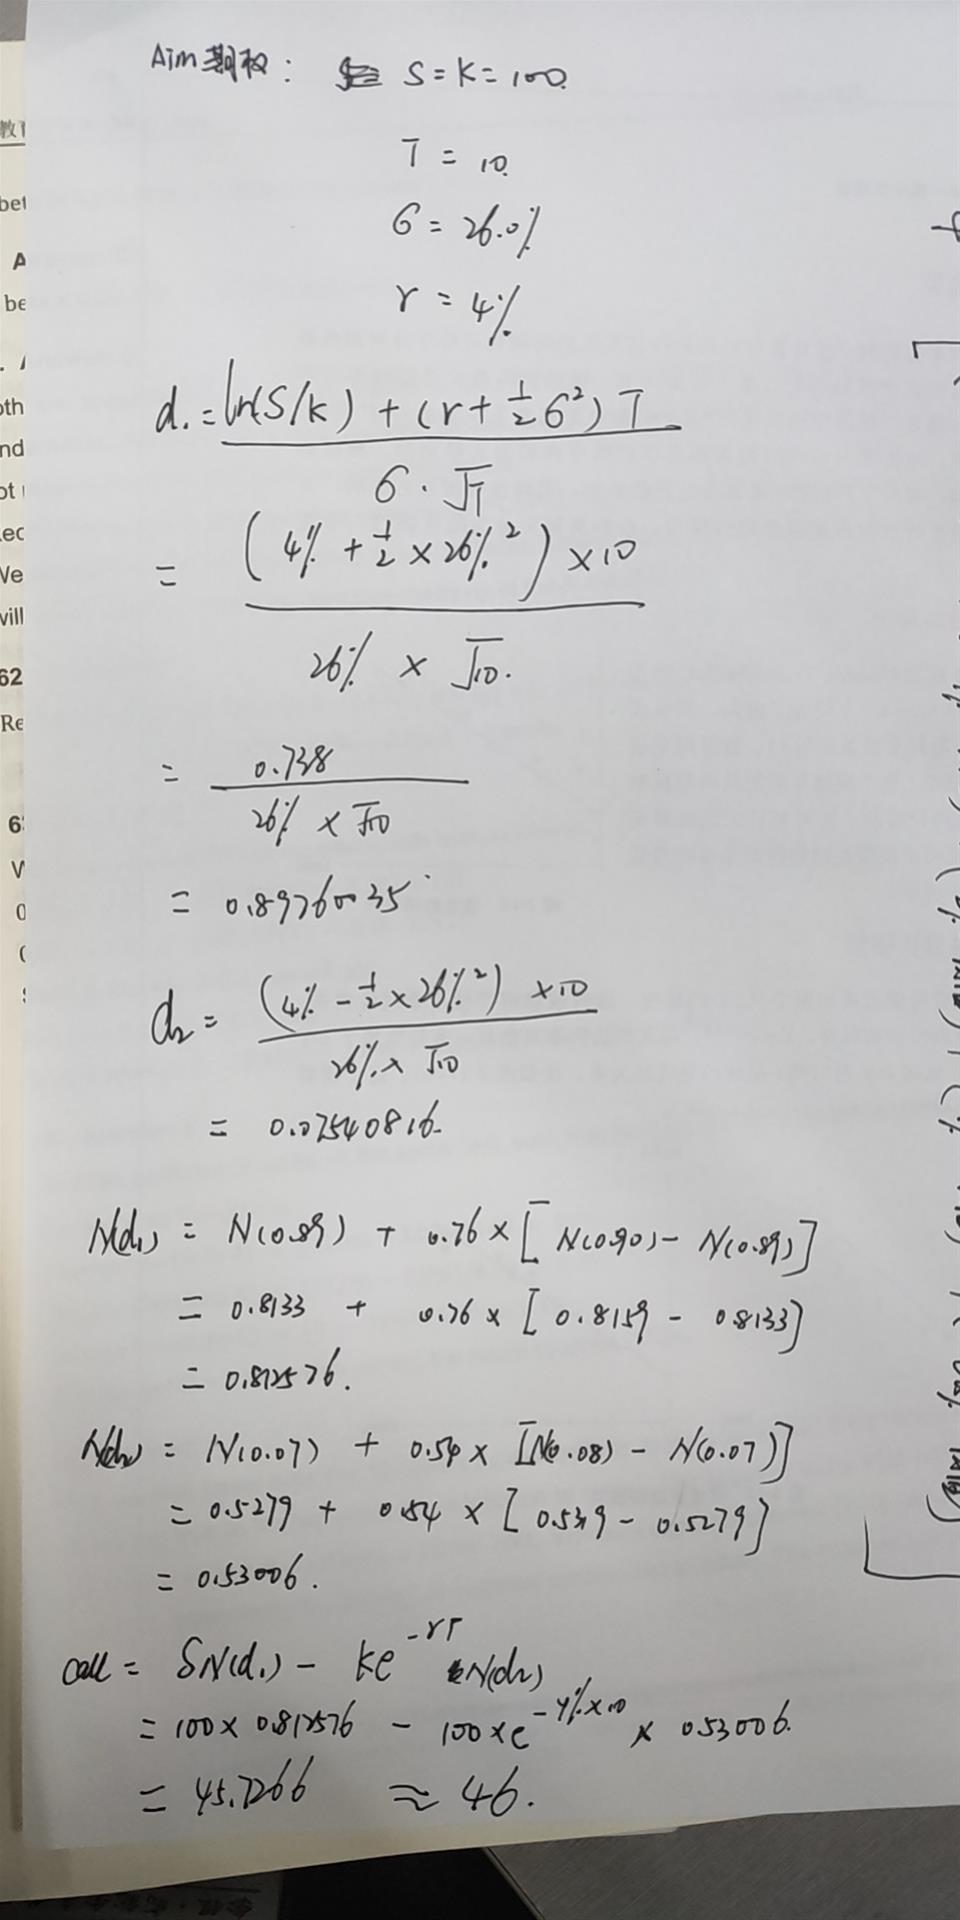 Aim期权: S=K=100.
T = 10.
6 = 26.0%
r = 4%
d1 = ln(S/K) + (r + 1/2 6²) T
6 · √T
= (4% + 1/2 × 26%²) × 10
26% × √10.
= 0.738
26% × √10
= 0.8976035
d2 = (4% - 1/2 × 26%²) × 10
26% × √10
= 0.07540816.
N(d1) = N(0.89) + 0.76 × [N(0.90) - N(0.89)]
= 0.8133 + 0.76 × [0.8159 - 0.8133]
= 0.812576.
N(d2) = N(0.07) + 0.54 × [N(0.08) - N(0.07)]
= 0.5279 + 0.54 × [0.5319 - 0.5279]
= 0.53006.
call = SN(d1) - Ke^-rT N(d2)
= 100 × 0.812576 - 100 × e^-4%×10 × 0.53006.
= 45.7266 ≈ 46.
教育
bet
A
be
. A
oth
nd
ot
We
will
62
Re
6
W
0